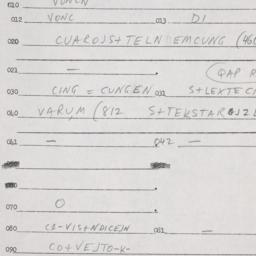 010 VONCN
012 VONC 013 DI
020 CUAROJS+TELN EMCUNG (460
021 — (QAP R
030 CING = CUNGEN 031 S+LEXTECI
040 VARUM (812 S+TEKSTAR
061 — 042 —
070 O
080 C1-VIS+NDICEJN 081 —
090 CO+VEJTO-K-